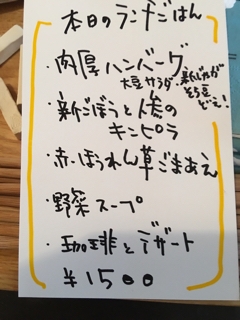 本日のランチごはん
・肉厚ハンバーグ
大豆サラダ・新じゃが
そら豆
どえ!
・新ごぼうと人参の
キンピラ
・赤ほうれん草ごまあえ
・野菜スープ
・珈琲とデザート
¥1500